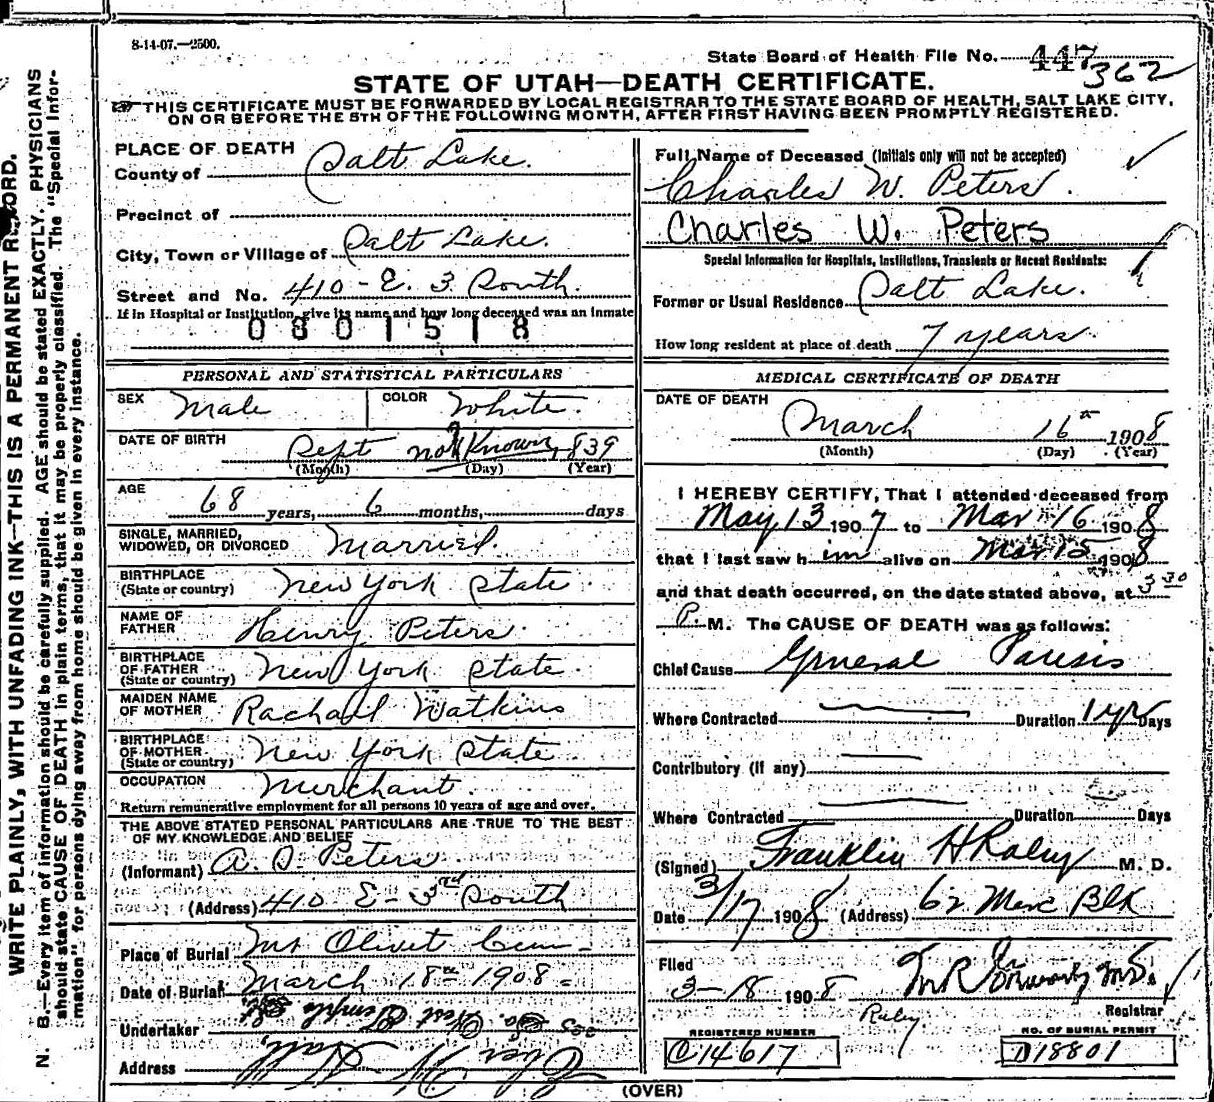 8-14-07.—2500.
State Board of Health File No. 447
362
STATE OF UTAH—DEATH CERTIFICATE.
THIS CERTIFICATE MUST BE FORWARDED BY LOCAL REGISTRAR TO THE STATE BOARD OF HEALTH, SALT LAKE CITY,
ON OR BEFORE THE 5TH OF THE FOLLOWING MONTH, AFTER FIRST HAVING BEEN PROMPTLY REGISTERED.
WRITE PLAINLY, WITH UNFADING INK—THIS IS A PERMANENT RECORD.
N. B.—Every item of information should be carefully supplied. AGE should be stated EXACTLY. PHYSICIANS
should state CAUSE OF DEATH in plain terms, that it may be properly classified. The "Special Infor-
mation" for persons dying away from home should be given in every instance.
PLACE OF DEATH
County of Salt Lake.
Precinct of
City, Town or Village of Salt Lake.
Street and No. 410 - E. 3 South.
If in Hospital or Institution, give its name and how long deceased was an inmate
0801518
PERSONAL AND STATISTICAL PARTICULARS
SEX Male COLOR White.
DATE OF BIRTH Sept not Known 839
(Month) (Day) (Year)
AGE 68 years, 6 months, days
SINGLE, MARRIED,
WIDOWED, OR DIVORCED Married.
BIRTHPLACE
(State or country) New York State.
NAME OF
FATHER Henry Peters.
BIRTHPLACE
OF FATHER
(State or country) New York State
MAIDEN NAME
OF MOTHER Rachael Watkins
BIRTHPLACE
OF MOTHER
(State or country) New York State
OCCUPATION Merchant.
Return remunerative employment for all persons 10 years of age and over.
THE ABOVE STATED PERSONAL PARTICULARS ARE TRUE TO THE BEST
OF MY KNOWLEDGE AND BELIEF
(Informant) A. D. Peters.
(Address) 410 E - 3rd South
Place of Burial Mt Olivet Cem -
Date of Burial March 18th 1908 -
Undertaker West Temple St
Address
Full Name of Deceased (Initials only will not be accepted)
Charles W. Peters.
Charles W. Peters
Special Information for Hospitals, Institutions, Transients or Recent Residents:
Former or Usual Residence Salt Lake.
How long resident at place of death 7 years.
MEDICAL CERTIFICATE OF DEATH
DATE OF DEATH
March 16th 1908
(Month) (Day) (Year)
I HEREBY CERTIFY, That I attended deceased from
May 13 1907 to Mar 16 1908
that I last saw h im alive on Mar 15 1908
and that death occurred, on the date stated above, at 3 30
P. M. The CAUSE OF DEATH was as follows:
Chief Cause General Paresis
Where Contracted Duration 1 yr Days
Contributory (if any)
Where Contracted Duration Days
(Signed) Franklin H Raley M. D.
Date 3/17 1908 (Address) 62 Merc Blk
Filed
3-18 1908
Registrar
Raley
REGISTERED NUMBER
C14617
NO. OF BURIAL PERMIT
D18801
(OVER)